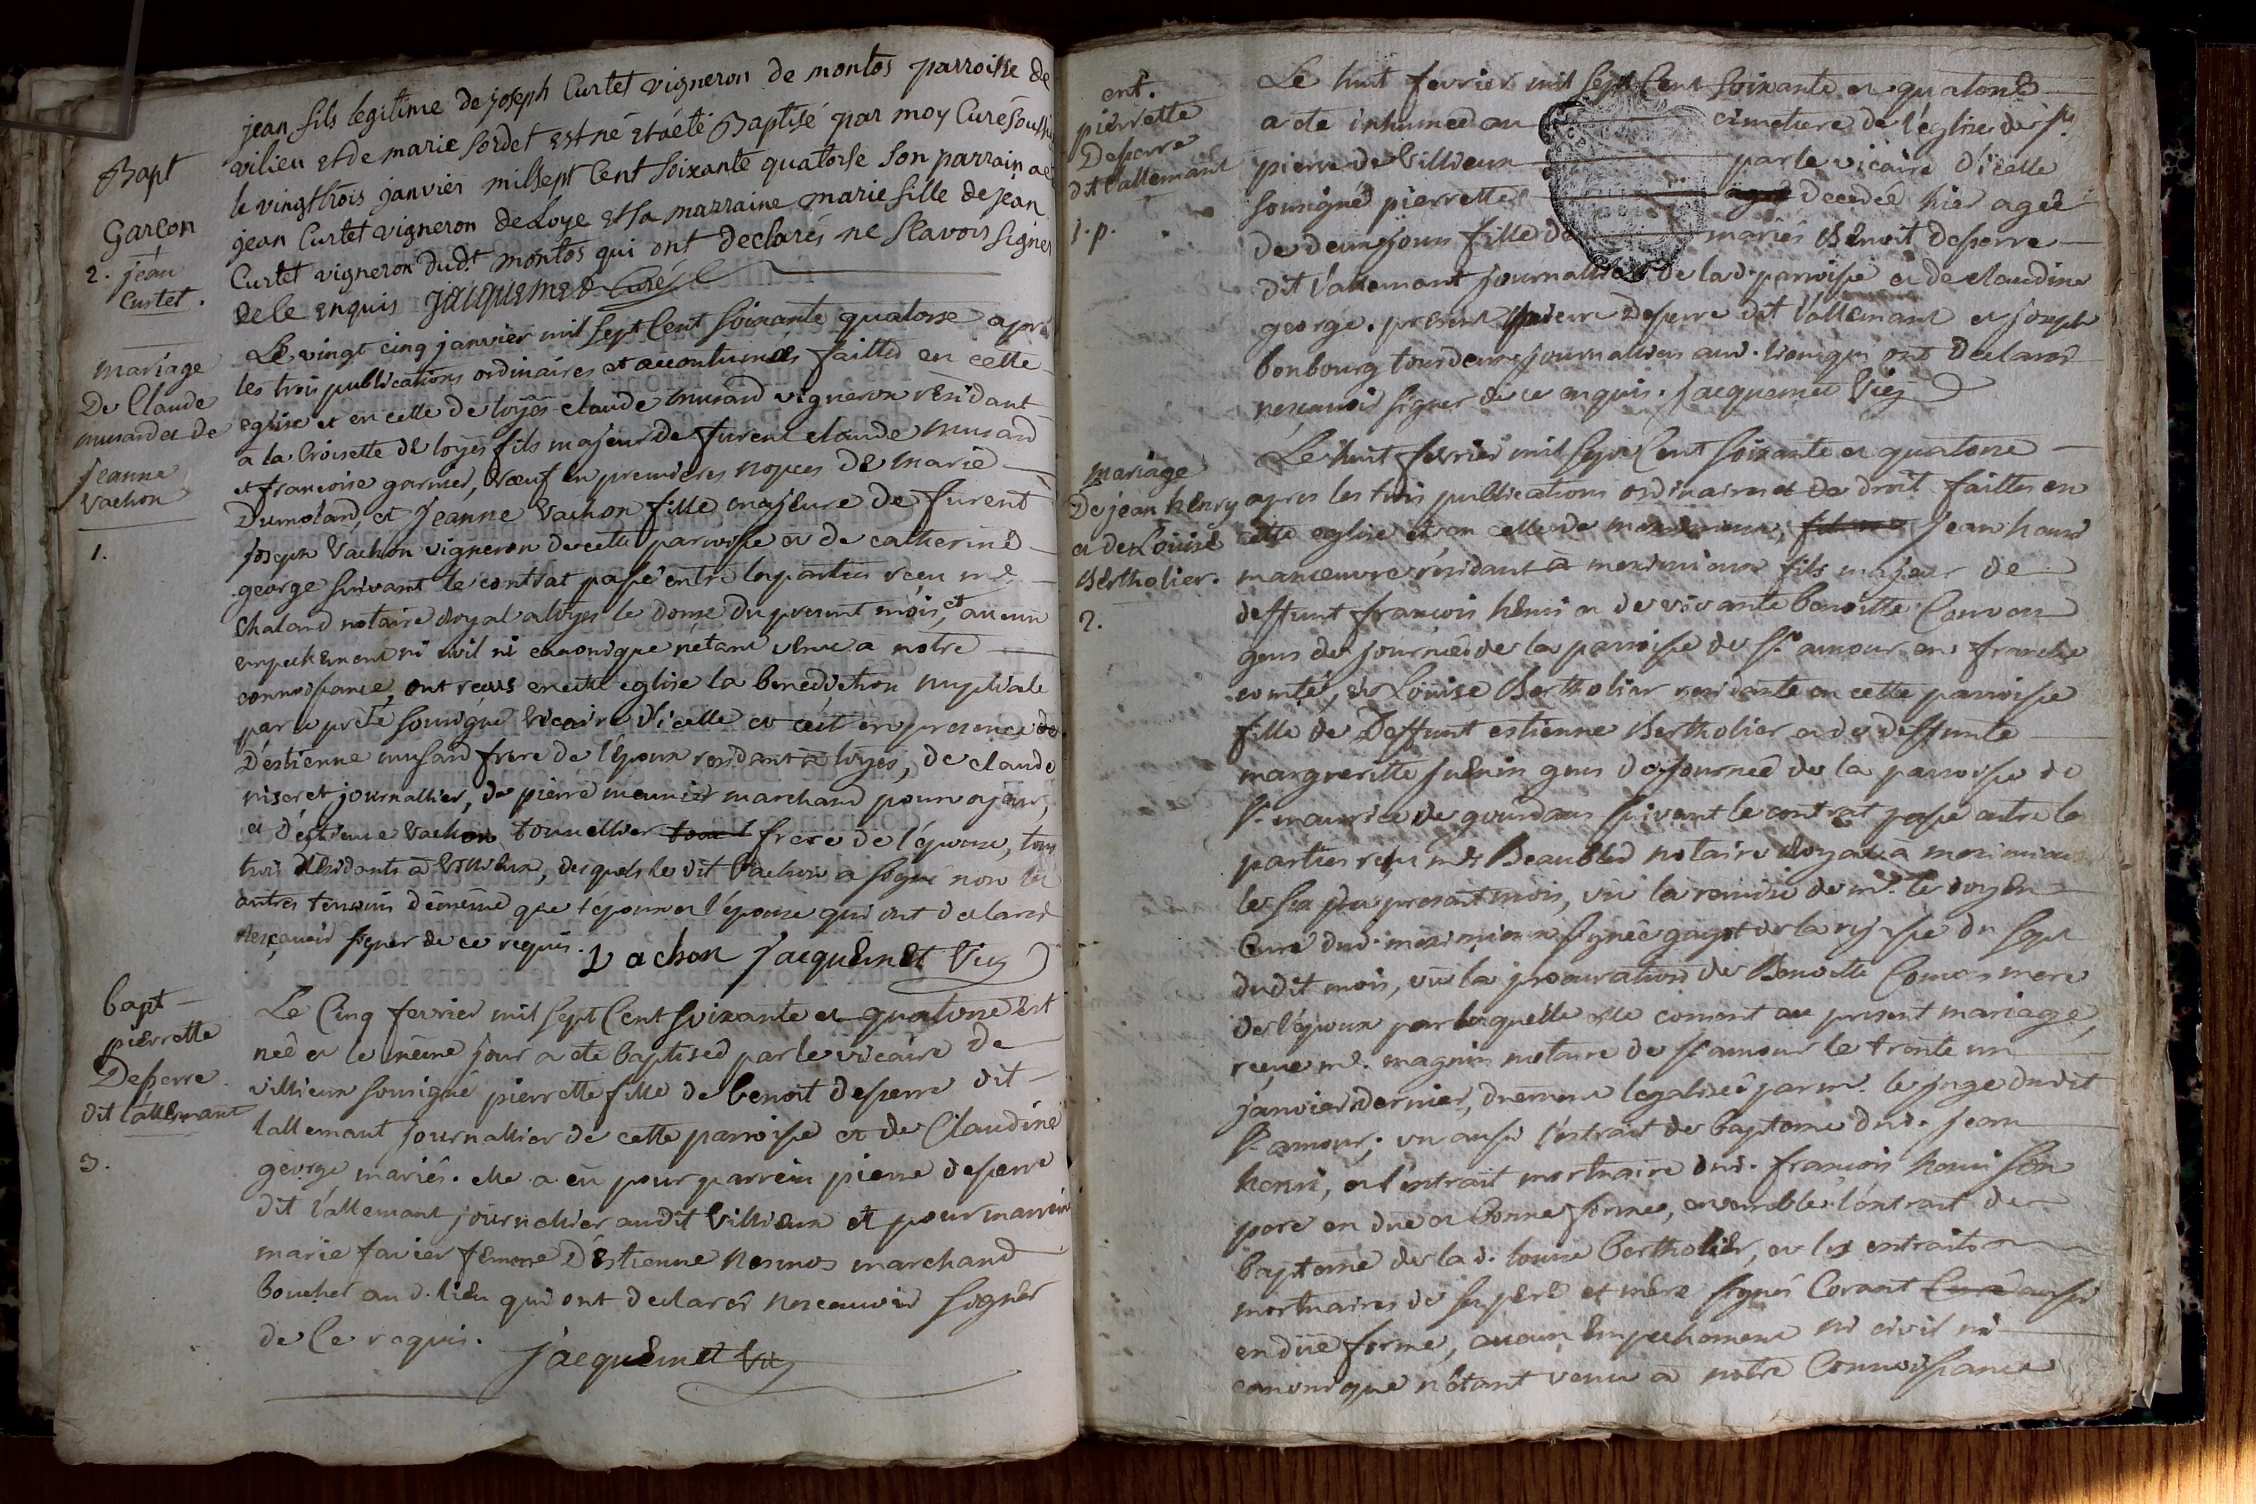 Bapt
Garcon
2. jean
Curtet.
jean fils legitime de joseph Curtet vigneron de montos parroisse de
vilieu et de marie sordet est né et a été Baptisé par moy Curé soussi
le vingt trois janvier mil sept Cent soixante quatorse son parrain a e
jean Curtet vigneron de Loye et sa marraine marie fille de jean
Curtet vigneron dudt montos qui ont declarés ne scavoir signer
de le enquis JACQUEMET Curé
mariage
De Claude
musard et de
jeanne
Vachon
1.
Le vingt cinq janvier mil sept Cent soixante quatorse après
les trois publications ordinaires et accoutumées faittes en cette
eglise et en celle de loyes claude musard vigneron résidant
a la Croisette de loyes fils majeur de furent claude musard
et francoise garnier, veuf en premieres nopces de marie
Dumolard, et jeanne Vachon fille majeure de furent
joseph Vachon vigneron de cette parroisse et de catherine
george suivant le contrat passé entre les parties receu me
Chaland notaire royal a loyes le douse du present mois, et aucun
empechement ni civil ni canonique n'étant venu a notre
connoissance, ont recus en cette eglise la benediction nuptiale
par le prêtre soussigné vicaire d'icelle et ce en presence de
D'estienne musard frere de l'époux residant a loyes, de claude
niseret journallier, de pierre meunier marchand pourvoyeur,
et d'estienne Vachon tonnellier frere de l'épouse, tous
trois residants a Villieux, desquels le dit Vachon a signé non les
autres temoins de même que l'époux et l'épouse qui ont declaré
ne sçavoir signer de ce requis. Vachon jacquemet Vic
bapt
pierrette
Deserre
dit l'allemant
3.
Le Cinq fevrier mil sept Cent soixante et quatorse est
née et le même jour a été baptisée par le vicaire de
villieux sousigné pierrette fille de benoit deserre dit
lallemant journallier de cette parroisse et de Claudine
george mariés. elle a eu pour parrein pierre deserre
dit l'allemant journalier audit Villieux et pour marreine
marie favier femme D'estienne nesmos marchand
boucher au d. lieu qui ont declaré ne scavoir signer
de Ce requis.
jacquemet Vic
ent.
pierrette
Deserre
dit l'allemant
1. p.
Le huit fevrier mil sept Cent soixante et quatorse
a été inhumée au cimetiere de l'eglise de St
pierre de Villieux par le vicaire d'icelle
sousigné pierrette decedée hier agée
de deux jours fille de mariés Benoit deserre
dit l'allemant journallier de la d. parroisse et de claudine
george. presents pierre Deserre dit l'allemant et joseph
bonbourg tous deux journaliers aud. lieu qui ont declaré
ne sçavoir signer de ce enquis. jacquemet Vic
mariage
De jean henry
et de Louise
Bertholier.
2.
Le huit fevrier mil sept Cent soixante et quatorse
apres les trois publications ordinaires et de droit faittes en
cette eglise et en celle de meximieux, jean henri
manoeuvre résidant a meximieux fils majeur de
deffunt francois henri et de vivante benoitte Convers
gens de journée de la parroisse de St amour en franche
comté, et Louise Bertholier residante en cette parroisse
fille de Deffunt estienne Bertholier et de deffunte
margueritte juenin gens de journée de la parroisse de
St maurice de gourdans suivant le contrat passé entre les
parties reçu me Beaubled notaire royal a meximieux
le six du present mois, vu la remise de mr. le doyen
Curé dud. meximieux signée gagot du sept
dudit mois, vu la procuration de Benoitte Convers mere
de l'époux par laquelle elle consent au present mariage,
reçue me. magnin notaire de St amour le trente un
janvier dernier, duement legalisée par mr. le juge dudit
St amour; vu aussi l'extrait de baptome dud. jean
henri, et l'extrait mortuaire dud. francois henri son
pere en due et bonne forme, ensemble l'extrait de
baptome de la d. louise bertholier, et les extraits
mortuaires de ses pere et mere signés Corant Curé aussi
en due forme, aucun empechement ni civil ni
canonique n'étant venu a notre Connoissance